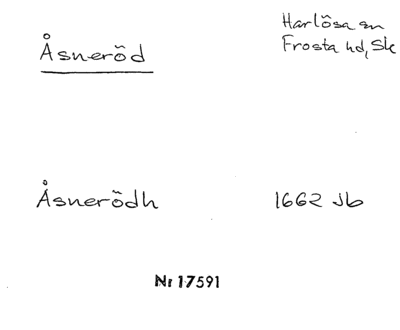 Åsneröd
Harlösa sn
Frosta hd, Sk
Åsnerödh 1662 Jb
Nr 17591